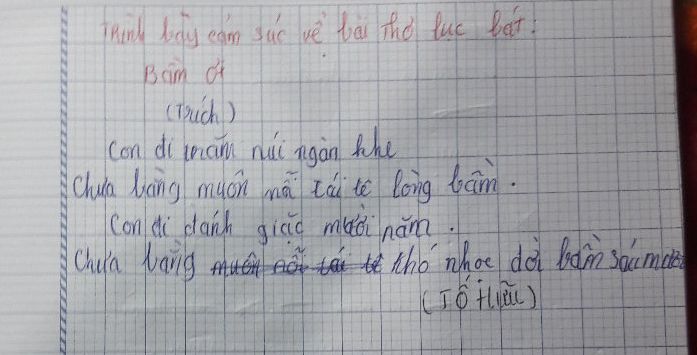 Trình bày cảm súc về bài thơ lục bát:
Bầm ơi
(Trích)
Con đi trăm núi ngàn khe
Chưa bằng muôn nỗi tái tê lòng bầm.
Con đi đánh giặc mười năm.
Chưa bằng muôn nỗi tái tê khó nhọc đời bầm sáu mươi
(Tố Hữu)